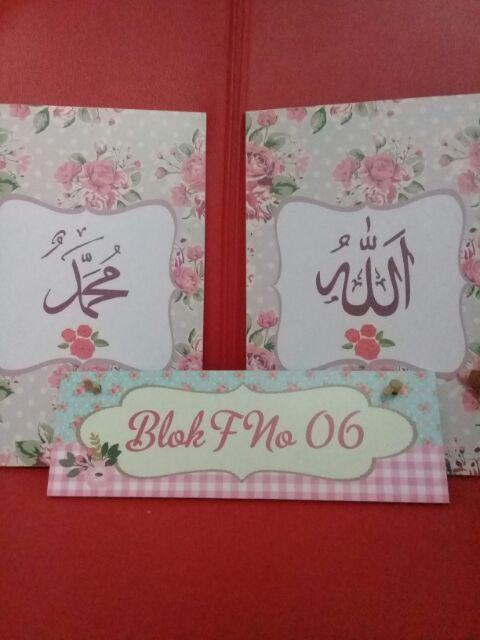 الله
محمد
Blok F No 06